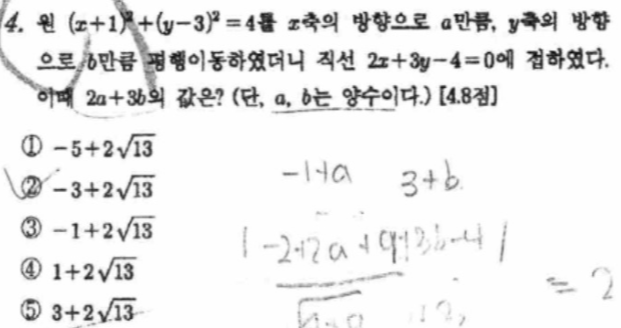 4. 원 (x+1)²+(y-3)²=4를 x축의 방향으로 a만큼, y축의 방향
으로 b만큼 평행이동하였더니 직선 2x+3y-4=0에 접하였다.
이때 2a+3b의 값은? (단, a, b는 양수이다.) [4.8점]
① -5+2√13
② -3+2√13
③ -1+2√13
④ 1+2√13
⑤ 3+2√13
-1+a 3+b
|-2+2a+9+3b-4|
= 2